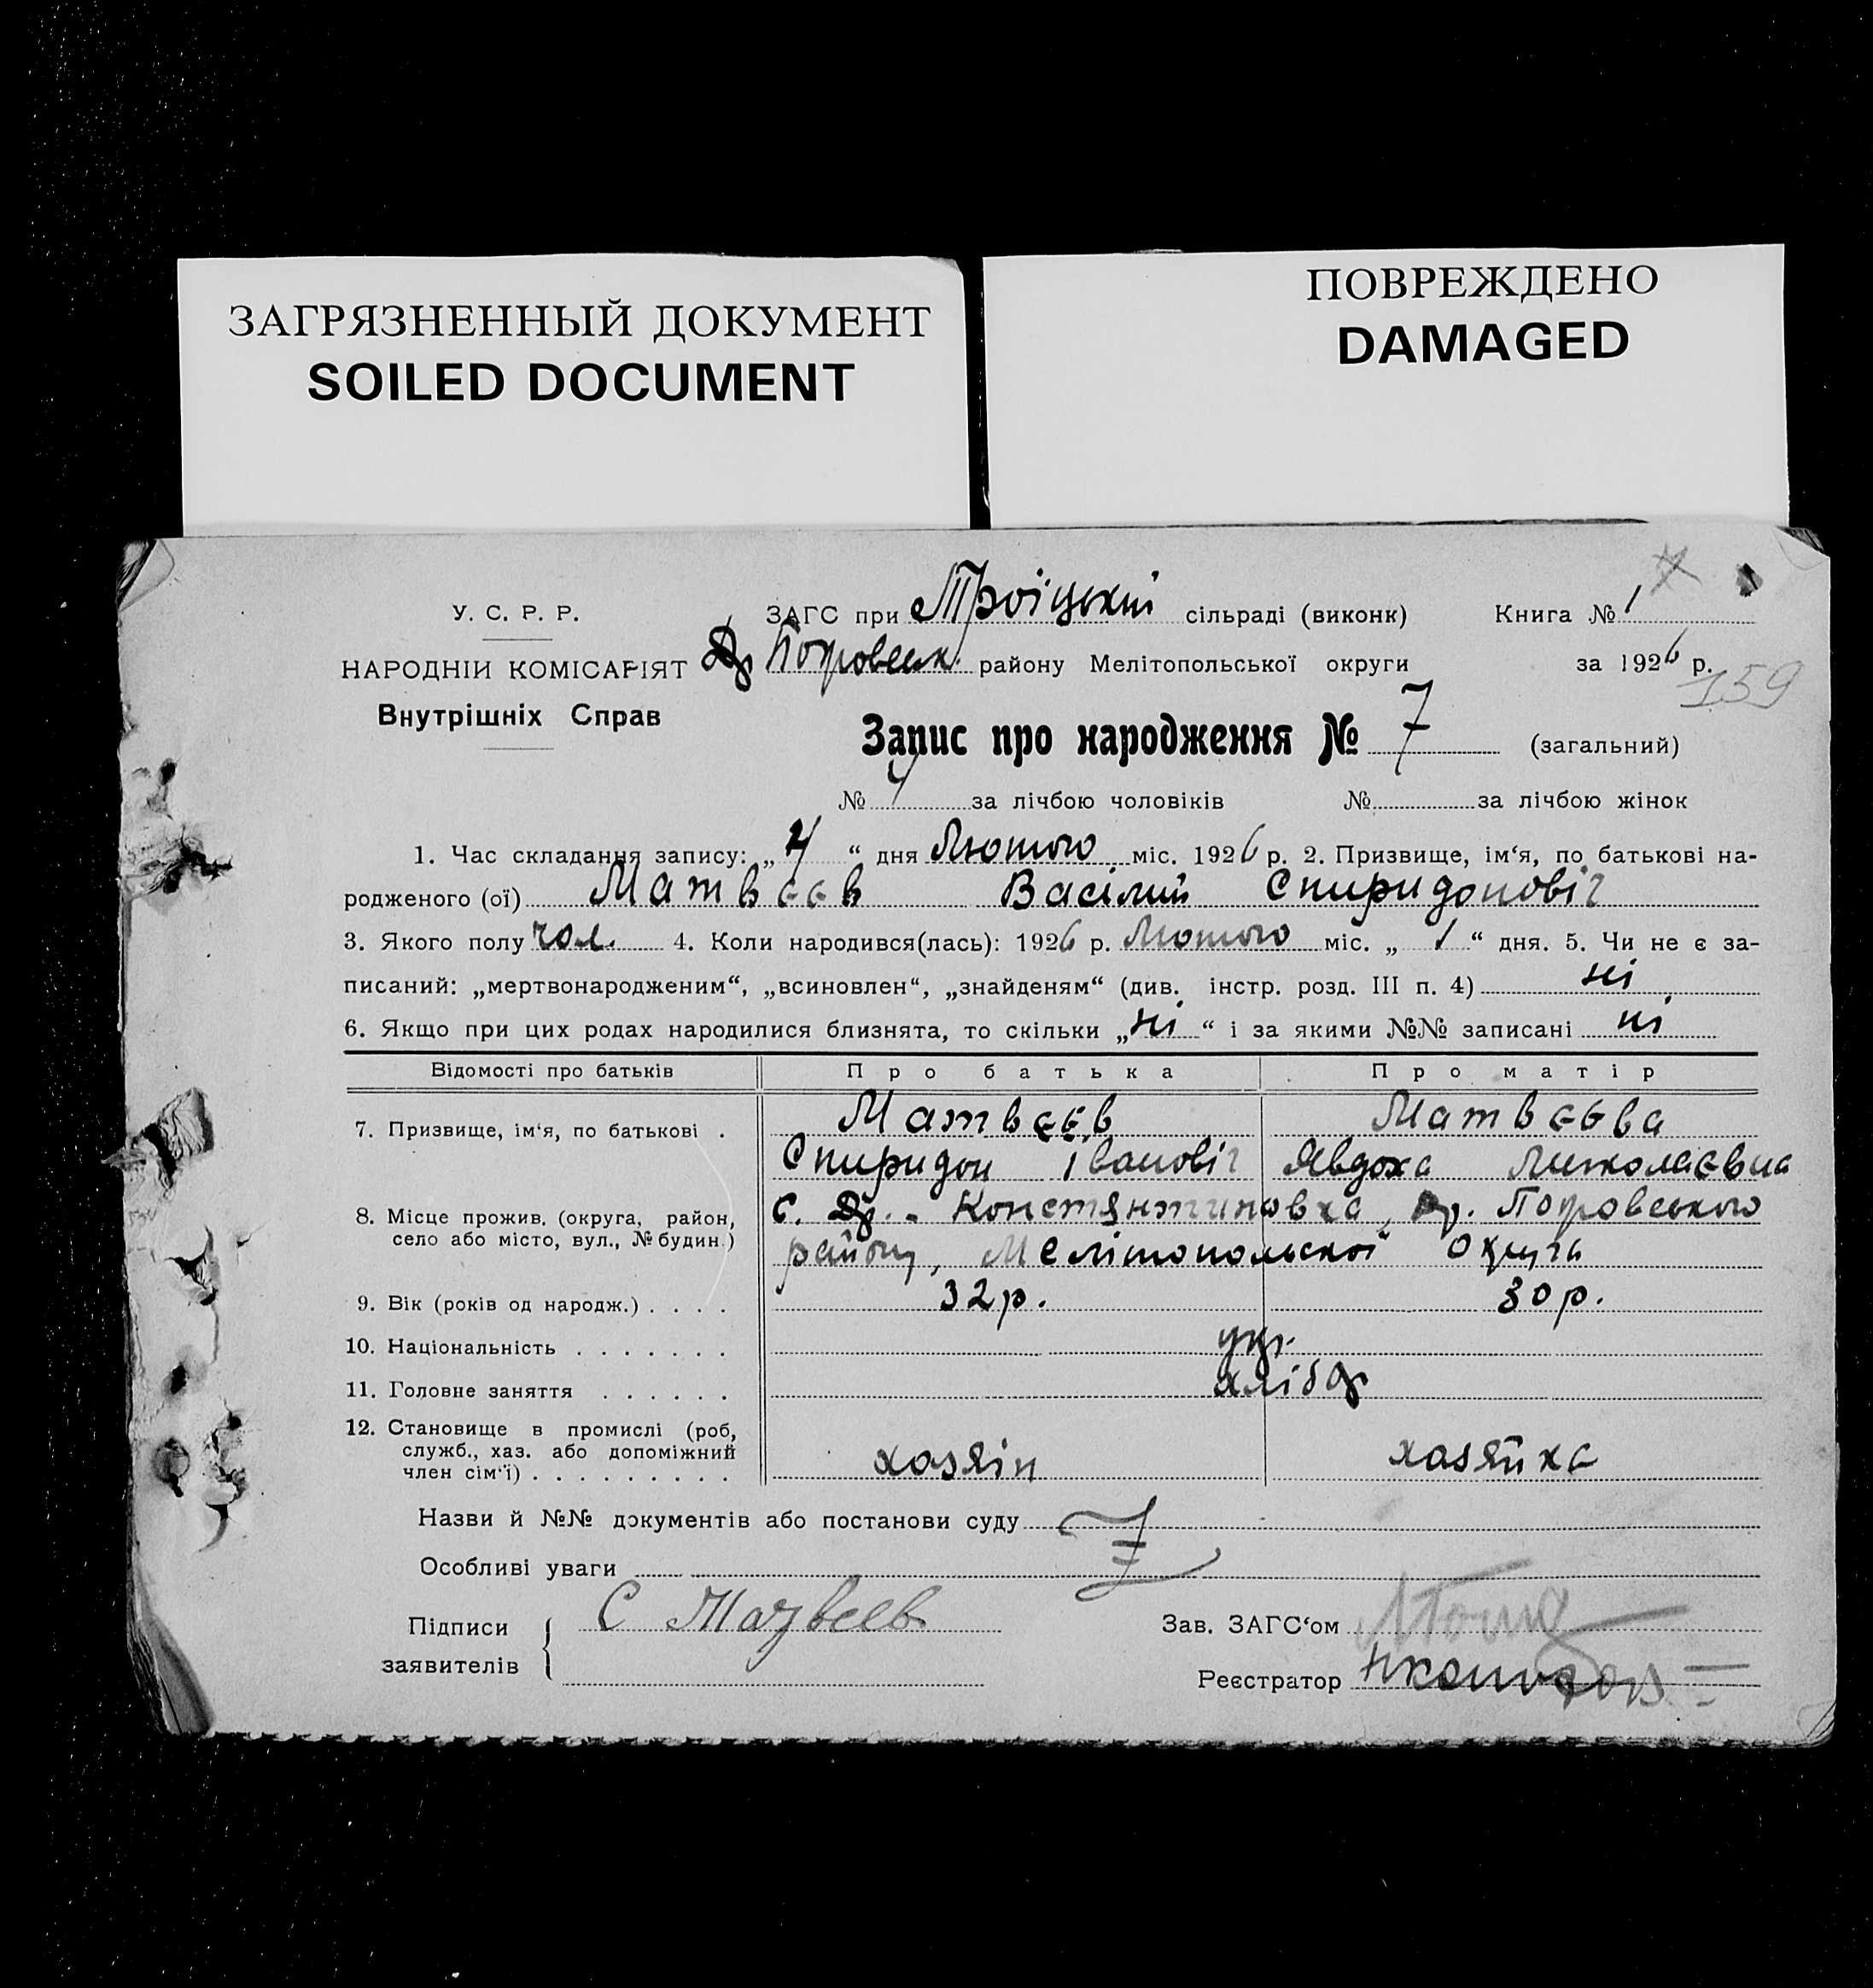 ЗАГРЯЗНЕННЫЙ ДОКУМЕНТ
SOILED DOCUMENT
ПОВРЕЖДЕНО
DAMAGED
У. С. Р. Р.
НАРОДНІЙ КОМІСАРІЯТ
Внутрішніх Справ
ЗАГС при Троіцькій сільраді (виконк) Книга № 1
району Мелітопольської округи за 1926 р.
159
Запис про народження № 7 (загальний)
№ 4 за лічбою чоловіків № за лічбою жінок
1. Час складання запису: „ 4 “ дня Лютого міс. 1926 р. 2. Призвище, ім‘я, по батькові на-
родженого (ої) Матвєєв Васілий Спиридоновіч
3. Якого полу чол. 4. Коли народився(лась): 1926 р. Лютого міс. „ 1 “ дня. 5. Чи не є за-
писаний: „мертвонародженим“, „всиновлен“, „знайденям“ (див. інстр. розд. III п. 4) ні
6. Якщо при цих родах народилися близнята, то скільки „ ні “ і за якими №№ записані ні
Відомості про батьків Про батька Про матір
7. Призвище, ім‘я, по батькові . Матвєєв Матвєєва
Спиридон Івановіч Явдоха Миколаєвна
8. Місце прожив. (округа, район,
село або місто, вул., № будин.)
с. Др. - Константиновка, Др. Покровського
району, Мелітопольскої Округи
9. Вік (років од народж.) . . . . 32 р. 30 р.
10. Національність . . . . . . . укр.
11. Головне заняття . . . . . . хлібор
12. Становище в промислі (роб,
служб., хаз. або допоміжний
член сім‘ї) . . . . . . . . . хазяін хазяйка
Назви й №№ документів або постанови суду
Особливі уваги
Підписи
заявителів
С Матвеев
Зав. ЗАГС‘ом
Реєстратор